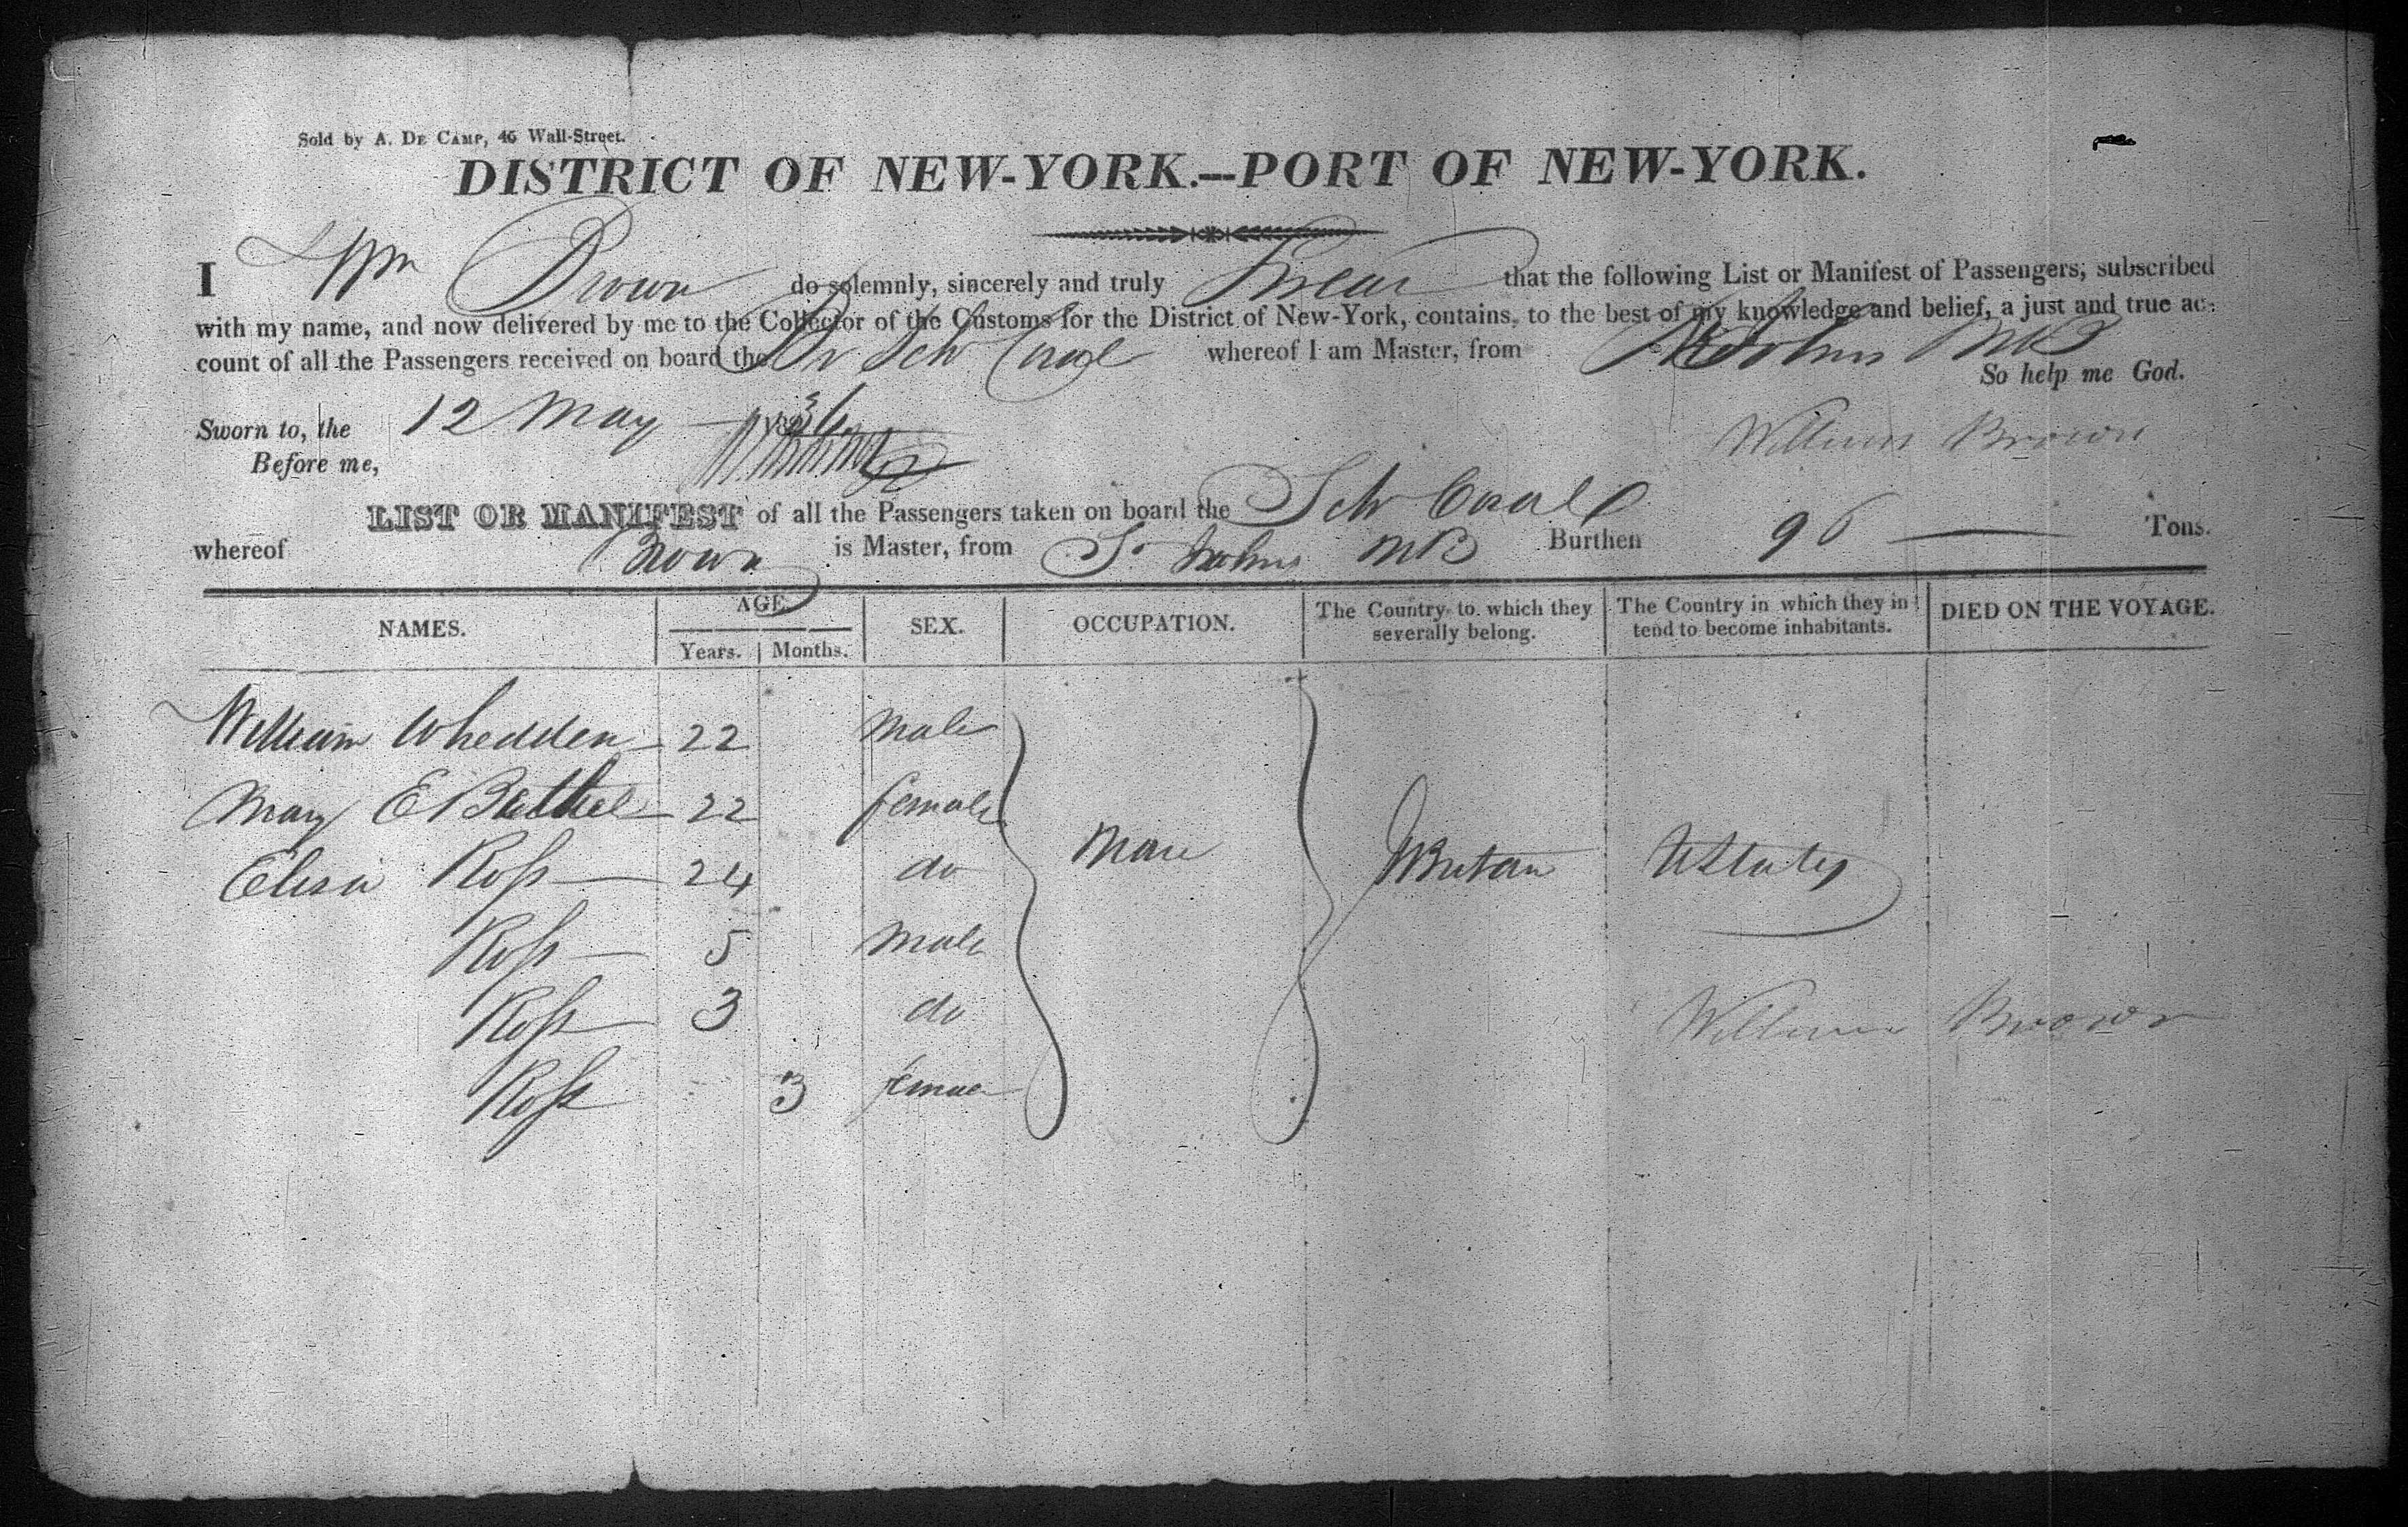 Sold by A. DE CAMP, 46 Wall-Street.
DISTRICT OF NEW-YORK.—PORT OF NEW-YORK.
I Wm Brown do solemnly, sincerely and truly Swear that the following List or Manifest of Passengers, subscribed
with my name, and now delivered by me to the Collector of the Customs for the District of New-York, contains, to the best of my knowledge and belief, a just and true ac-
count of all the Passengers received on board the Br Schr whereof I am Master, from St Johns NB
So help me God.
Sworn to, the 12 May 1836
William Brown
Before me,
LIST OR MANIFEST of all the Passengers taken on board the Schr
whereof Brown is Master, from St Johns NB Burthen 96 Tons.
NAMES. AGE. SEX. OCCUPATION. The Country to which they severally belong. The Country in which they intend to become inhabitants. DIED ON THE VOYAGE.
Years. Months.
William Whedden 22 Male
Mary E Bethel 22 female
Elisa Ross 24 do None Britain UStates
Ross 5 Male
Ross 3 do
William Brown
Ross 3 female